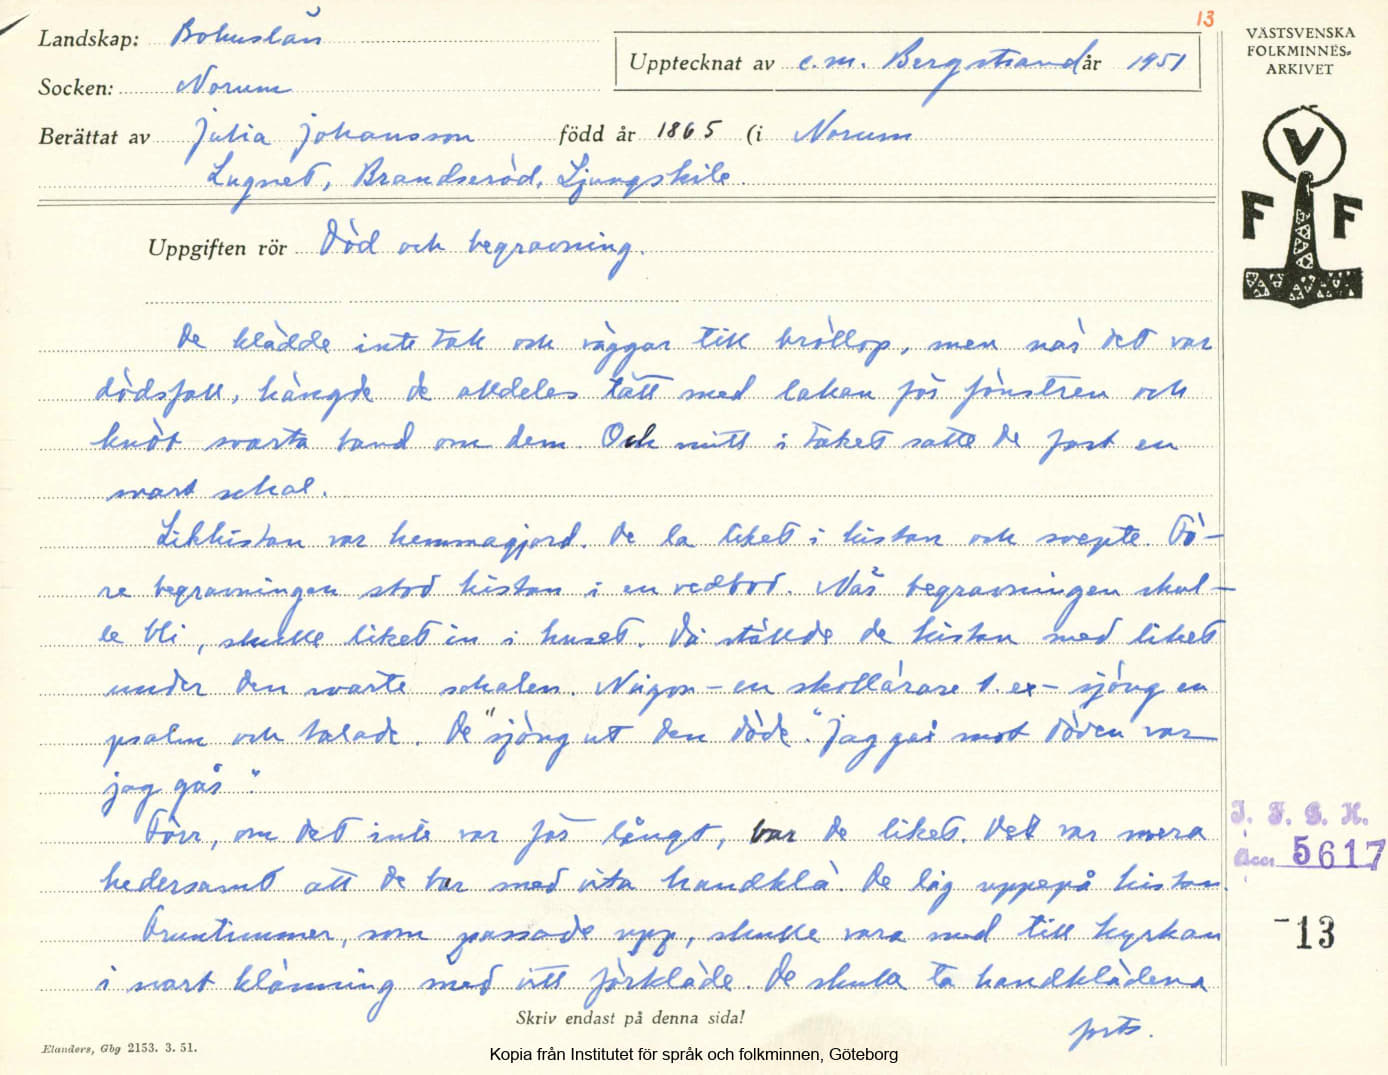 13
Landskap: Bohuslän
Upptecknat av C. M. Bergstrand år 1951
Socken: Norum
Berättat av Julia Johansson född år 1865 (i Norum
Lugnet, Brandseröd, Ljungskile.
VÄSTSVENSKA
FOLKMINNES-
ARKIVET
V
F F
Uppgiften rör Död och begravning.
De klädde inte tak och väggar till bröllop, men när det var
dödsfall, hängde de alldeles tätt med lakan för fönstren och
knöt svarta band om dem. Och mitt i taket satte de fast en
svart schal.
Likkistan var hemmagjord. De la liket i kistan och svepte. Fö-
re begravningen stod kistan i en vedbod. När begravningen skul-
le bli, skulle liket in i huset. Då ställde de kistan med liket
under den svarta schalen. Någon – en skollärare t. ex – sjöng en
psalm och talade. De "sjöng ut den döde". "Jag går mot döden var
jag går".
Förr, om det inte var för långt, bar de liket. Det var mera
hedersamt att de bar med vita handklä. De låg uppepå kistan.
Fruntimmer, som passade upp, skulle vara med till kyrkan
i svart klänning med vitt förkläde. De skulle ta handklädena
forts.
Skriv endast på denna sida!
Elanders, Gbg 2153. 3. 51.
I. F. G. H.
Acc. 5617
-13
Kopia från Institutet för språk och folkminnen, Göteborg